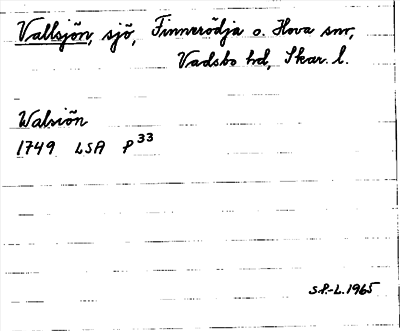 Vallsjön, sjö, Finnerödja o. Hova snr,
Vadsbo hd, Skar. l.
Walsiön
1749 LSA P33
S.P.-L. 1965